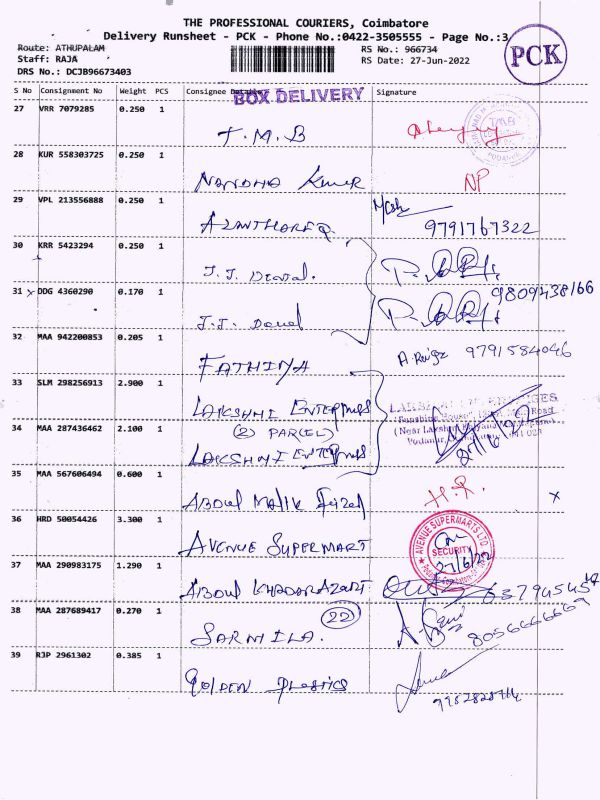 THE PROFESSIONAL COURIERS, Coimbatore
Delivery Runsheet - PCK - Phone No.:0422-3505555 - Page No.:3
PCK
Route: ATHUPALAM
RS No.: 966734
Staff: RAJA
RS Date: 27-Jun-2022
DRS No.: DCJB96673403
S No Consignment No Weight PCS Consignee Details Signature
BOX DELIVERY
27 VRR 7079285 0.250 1
T.M.B
28 KUR 558303725 0.250 1
Nandha Kumar NP
29 VPL 213556888 0.250 1
9791767322
30 KRR 5423294 0.250 1
J.J.
31 x DDG 4360290 0.170 1
9809438166
J.J.
32 MAA 942200853 0.205 1
FATHIMA 9791584046
33 SLM 298256913 2.900 1
LAKSHMI ENTERPRISES
34 MAA 287436462 2.100 1
(2) PARCEL)
LAKSHMI ENTERPRISES
35 MAA 567606494 0.600 1
Abdul Malik x
36 HRD 50054426 3.300 1
AVENUE SUPERMART
AVENUE SUPERMARTS LTD
SECURITY
27/6/22
37 MAA 290983175 1.290 1
Abdul
38 MAA 287689417 0.270 1
22
SARMILA. 8056666669
39 RJP 2961302 0.385 1
Golden Plastics